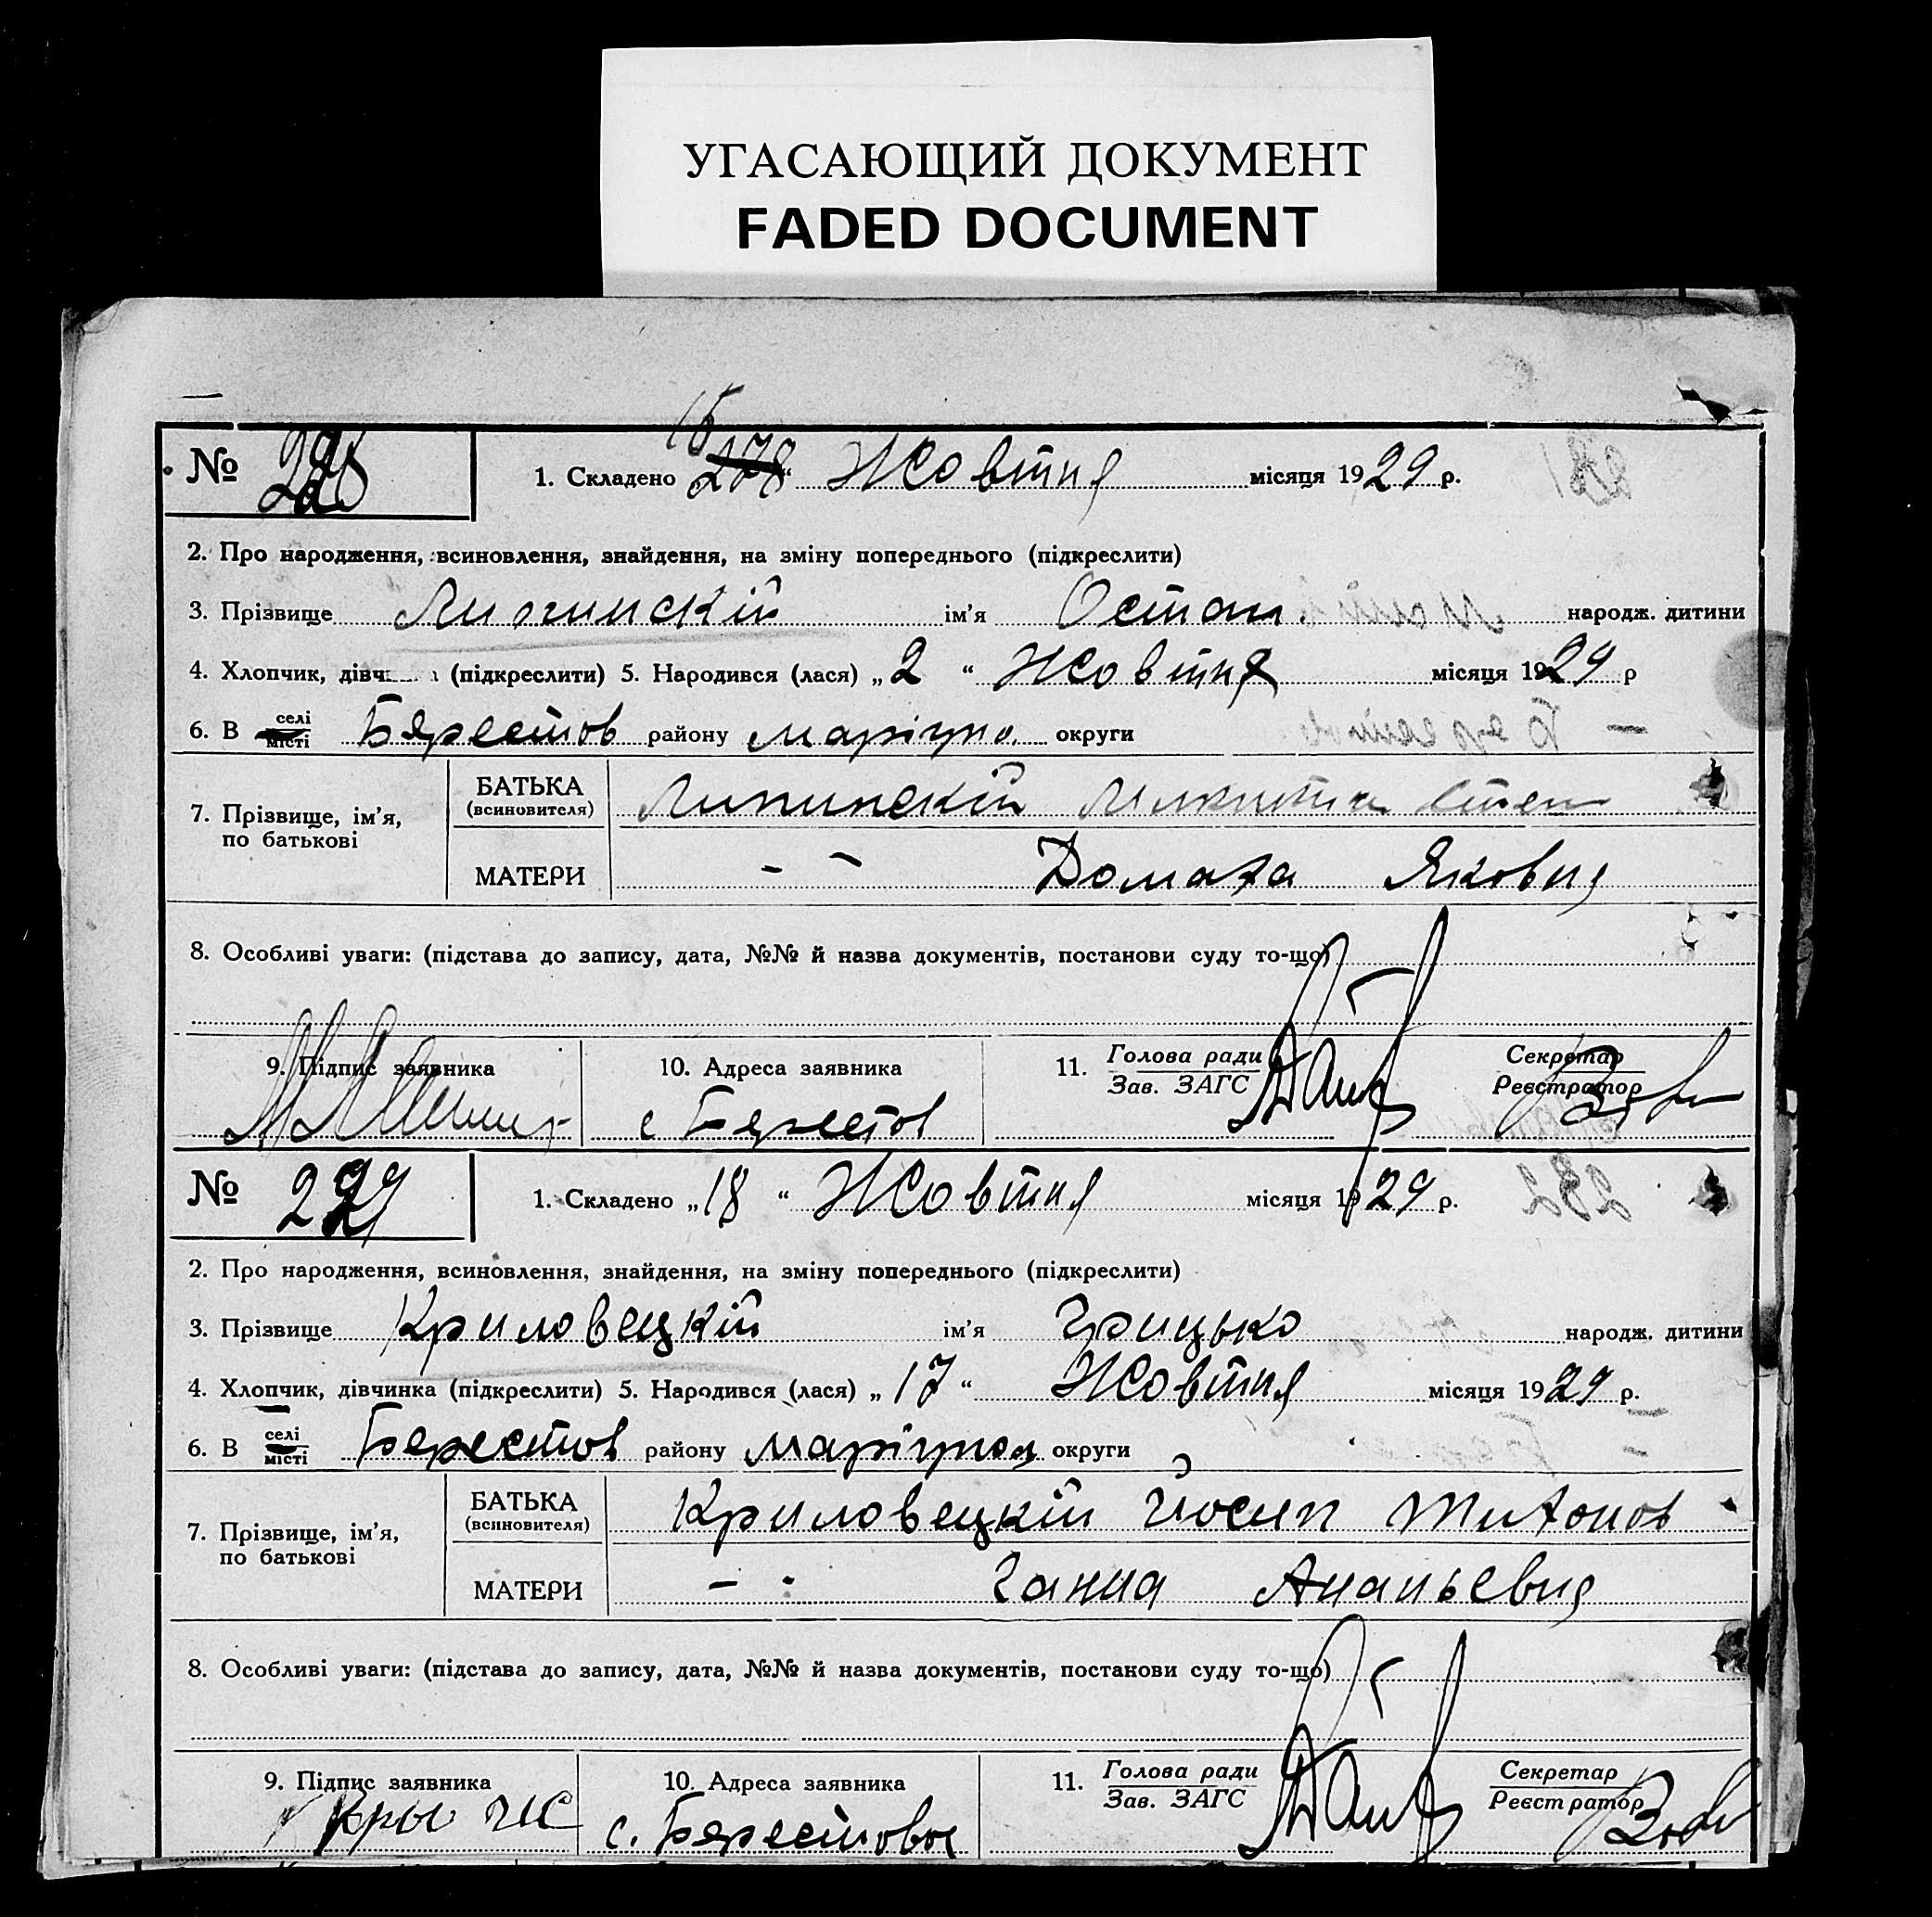 УГАСАЮЩИЙ ДОКУМЕНТ
FADED DOCUMENT
№ 228 1. Складено 15 278 “ Жовтня місяця 1929 р.
2. Про народження, всиновлення, знайдення, на зміну попереднього (підкреслити)
3. Прізвище Липинскій ім’я Остап народж. дитини
4. Хлопчик, (підкреслити) 5. Народився (лася) „ 2 “ Жовтня місяця 1929 р
6. В селі місті Бэрестов району маріупо. округи
7. Прізвище, ім’я, по батькові
БАТЬКА (всиновителя) Липинскій Микита Степ
МАТЕРИ - - Домаха Яковня
8. Особливі уваги: (підстава до запису, дата, №№ й назва документів, постанови суду то-що)
9. Підпис заявника 10. Адреса заявника 11. Голова ради Зав. ЗАГС Секретар Реєстратор
с Бэрестов
№ 229 1. Складено „ 18 “ Жовтня місяця 1929 р.
2. Про народження, всиновлення, знайдення, на зміну попереднього (підкреслити)
3. Прізвище Криловецкій ім’я Грицько народж. дитини
4. Хлопчик, дівчинка (підкреслити) 5. Народився (лася) „ 17 “ Жовтня місяця 1929 р.
6. В селі місті Бэрестов району маріупол округи
7. Прізвище, ім’я, по батькові
БАТЬКА (всиновителя) Криловецкій Йосип Тихонов
МАТЕРИ - - Ганна Ананьевня
8. Особливі уваги: (підстава до запису, дата, №№ й назва документів, постанови суду то-що)
9. Підпис заявника 10. Адреса заявника 11. Голова ради Зав. ЗАГС Секретар Реєстратор
с. Бэрестовое